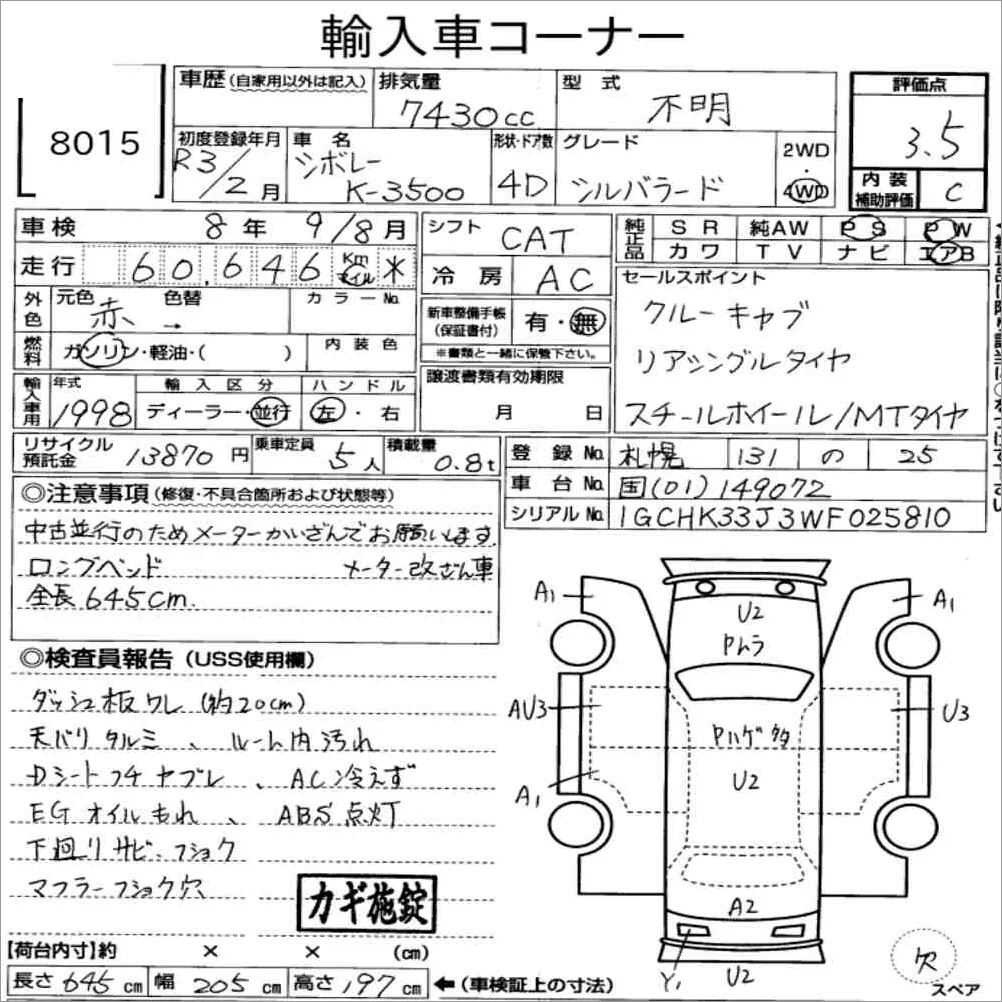 輸入車コーナー
8015
車歴(自家用以外は記入) 排気量 7430cc 型式 不明 評価点 3.5
初度登録年月 R3/2月 車名 シボレー K-3500 形状・ドア数 4D グレード シルバラード 2WD・4WD 内装補助評価 C
車検 8年 9/8月 シフト CAT 純正品 SR 純AW PS PW
カワ TV ナビ エアB
走行 60,646 Km マイル * 冷房 AC
外色 元色 赤 → 色替 カラーNo.
新車整備手帳(保証書付) 有・無
※書類と一緒に保管下さい。
燃料 ガソリン・軽油・( ) 内装色
セールスポイント
クルーキャブ
リアシングルタイヤ
スチールホイール/MTタイヤ
輸入車用 年式 1998 輸入区分 ディーラー・並行 ハンドル 左・右
譲渡書類有効期限 月 日
リサイクル預託金 13870円 乗車定員 5人 積載量 0.8t
登録No. 札幌 131 の 25
車台No. 国(01)149072
シリアルNo. 1GCHK33J3WF025810
◎注意事項(修復・不具合箇所および状態等)
中古並行のためメーターかいざんでお願いします
ロングベッド メーター改ざん車
全長645cm.
◎検査員報告(USS使用欄)
ダッシュ板ワレ(約20cm)
天バリタルミ、ルーム内汚れ
Dシートフチヤブレ、AC冷えず
EGオイルもれ、ABS点灯
下廻りサビ・フショク
マフラーフショク穴
カギ施錠
【荷台内寸】約 × × (cm)
長さ645cm 幅205cm 高さ197cm ←(車検証上の寸法)
A1
U2
Pムラ
A1
AU3
Pハゲ多
U2
U3
A1
A2
Y1
U2
欠
スペア